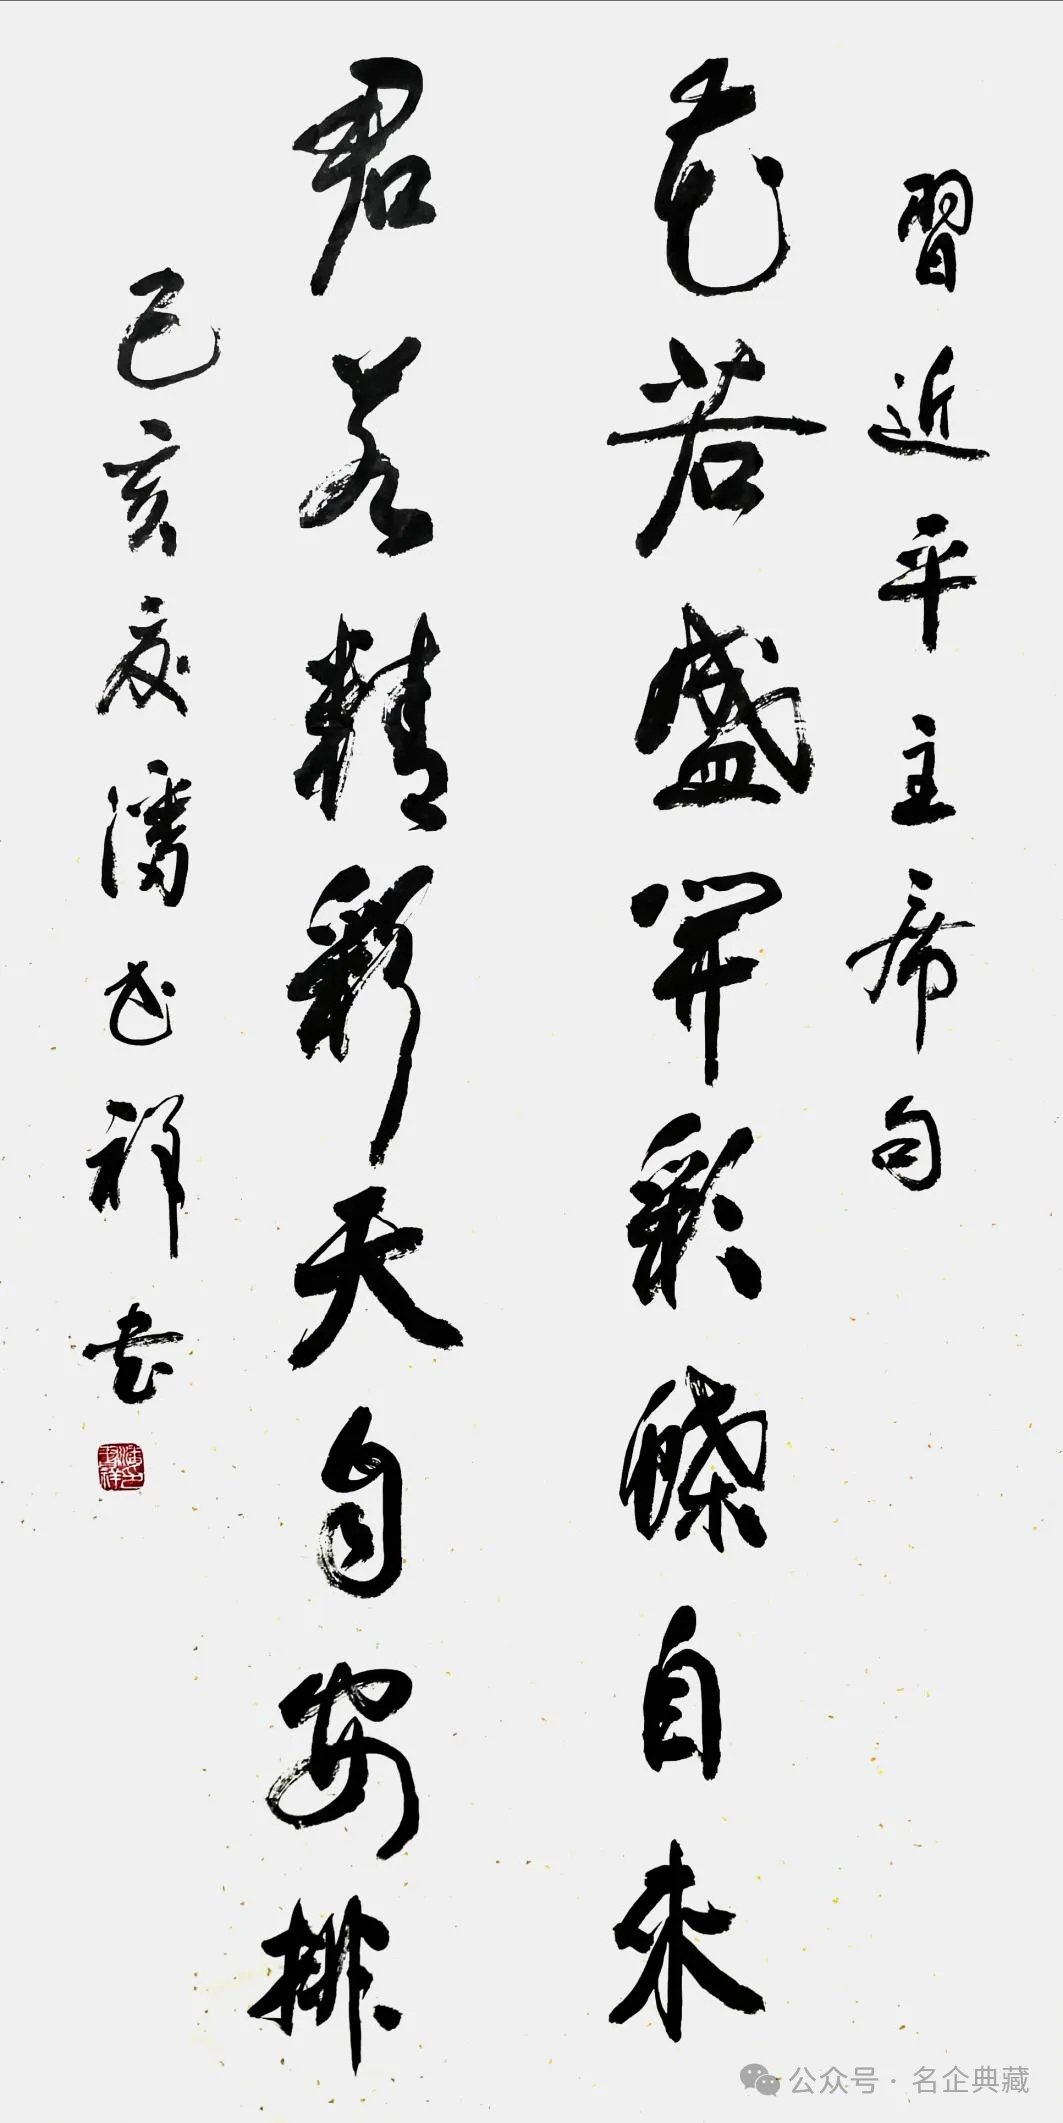 習近平主席句
花若盛開彩蝶自来
君若精彩天自安排
己亥夏潘祥書
公众号 · 名企典藏